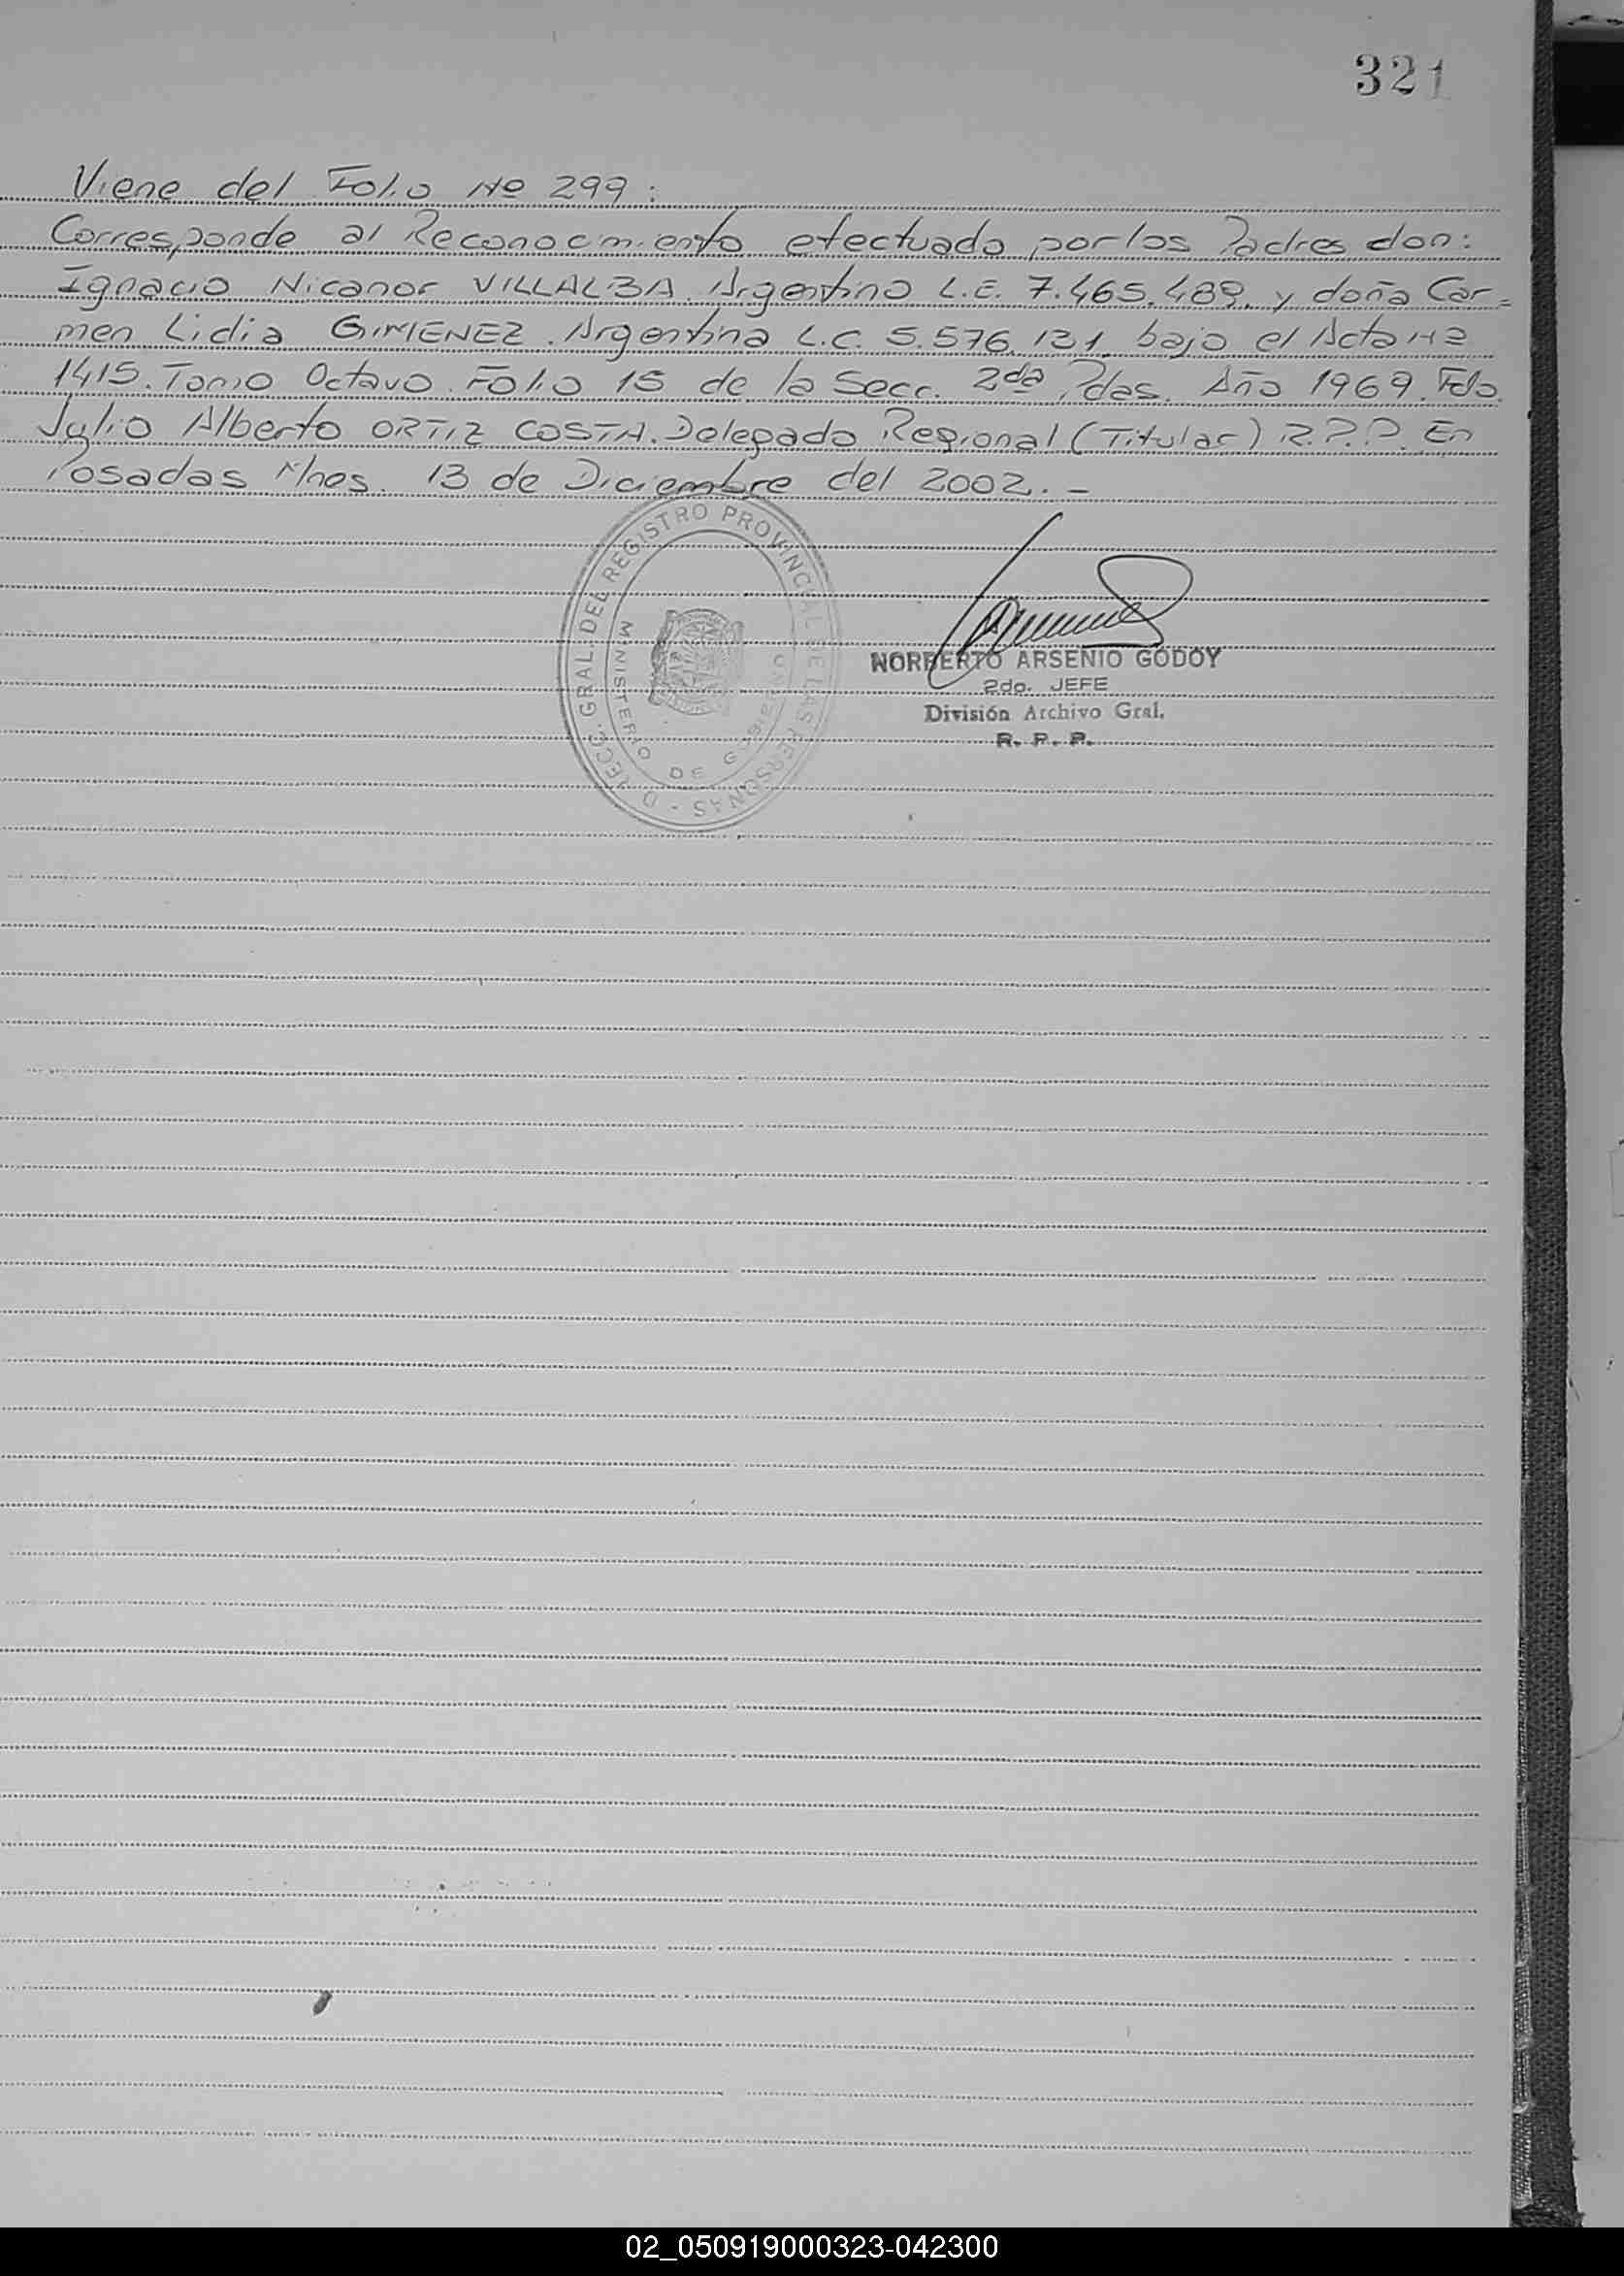 321
Viene del Folio Nº 299:
Corresponde al Reconocimiento efectuado por los Padres don:
Ignacio Nicanor VILLALBA. Argentino L.E. 7.465.489. y doña Car=
men Lidia GIMENEZ. Argentina L.C. 5.576.131. bajo el Acta Nº
1415. Tomo Octavo. Folio 15 de la Secc. 2da Pdas. Año 1969. Fdo.
Julio Alberto ORTIZ COSTA. Delegado Regional (Titular) R.P.P. En
Posadas Mnes. 13 de Diciembre del 2002.-
DIRECC. GRAL. DEL REGISTRO PROVINCIAL DE LAS PERSONAS -
MINISTERIO DE GOBIERNO
NORBERTO ARSENIO GODOY
2do. JEFE
División Archivo Gral.
R. P. P.
02_050919000323-042300